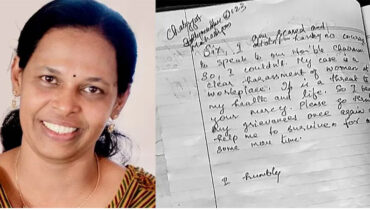 Sir, I am scared and
didn't having no courage
to speak to our Hon'ble Chairman
So, I couldn't. My case is a
clear harassment of women at
workplace. It is a threat to
my health and life. So I beg
your mercy. Please go
my grievances once again
help me to survive for
some more time.
I humbly